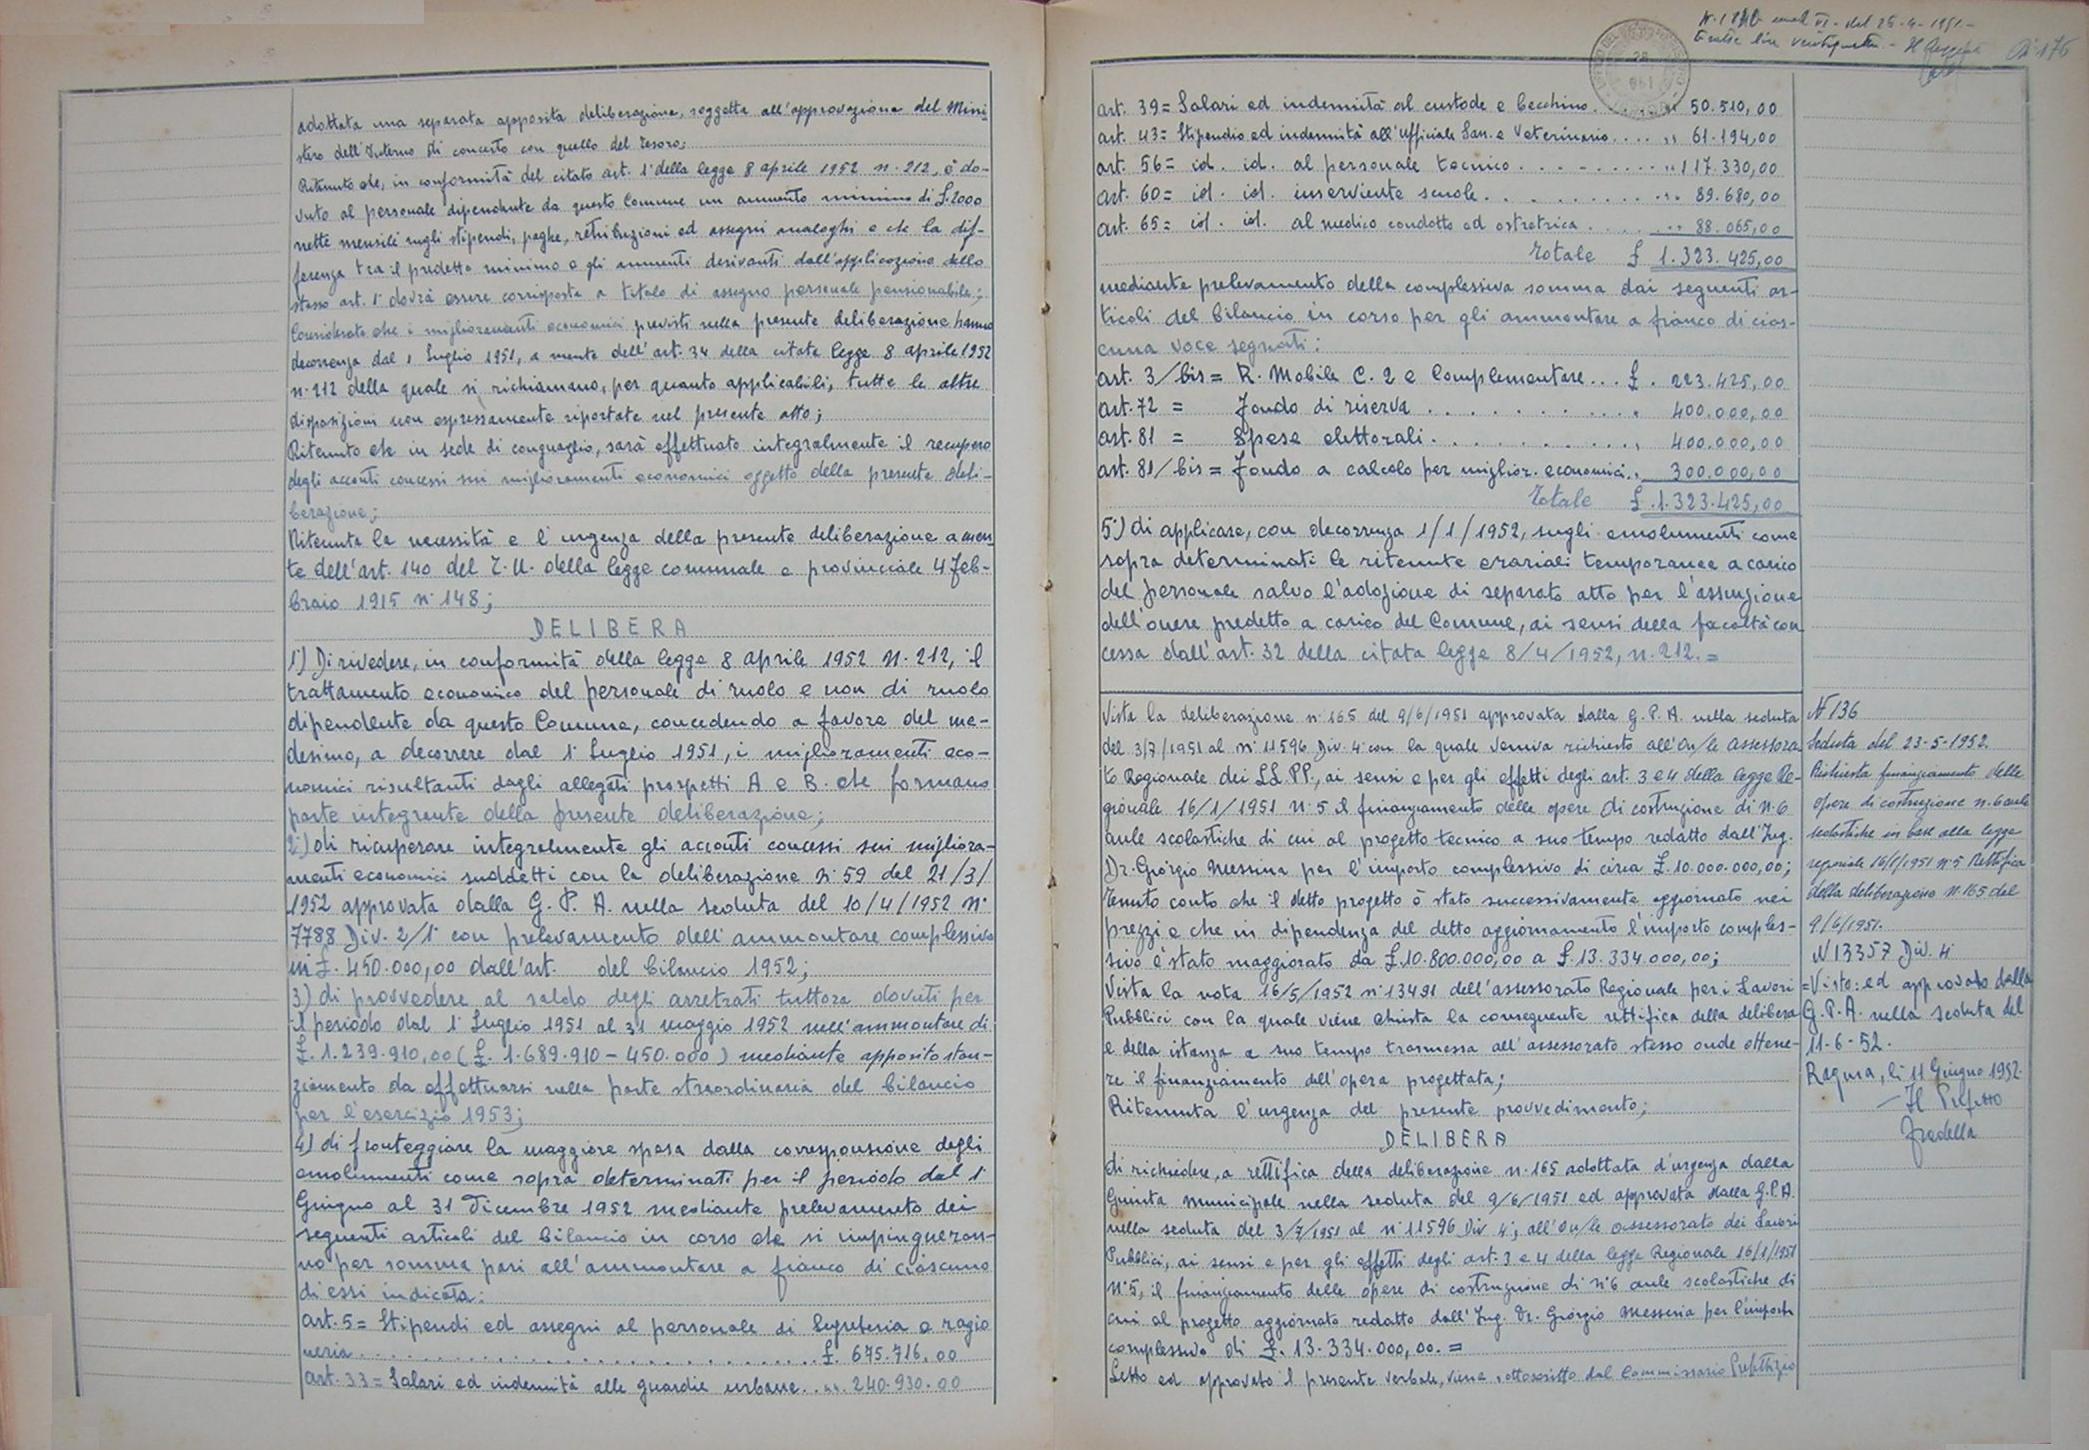 adottata una separata apposita deliberazione, soggetta all'approvazione del Mini-
stero dell'Interno di concerto con quello del Tesoro;
Ritenuto che, in conformità del citato art. 1° della legge 8 aprile 1952 n. 212, è do-
vuto al personale dipendente da questo Comune un aumento minimo di £. 2000
nette mensili sugli stipendi, paghe, retribuzioni ed assegni analoghi e che la dif-
ferenza tra il predetto minimo e gli aumenti derivanti dall'applicazione dello
stesso art. 1° dovrà essere corrisposta a titolo di assegno personale pensionabile;
Considerato che i miglioramenti economici previsti nella presente deliberazione hanno
decorrenza dal 1 Luglio 1951, a mente dell'art. 34 della citata legge 8 aprile 1952
n. 212 della quale si richiamano, per quanto applicabili, tutte le altre
disposizioni non espressamente riportate nel presente atto;
Ritenuto che in sede di conguaglio, sarà effettuato integralmente il recupero
degli acconti concessi sui miglioramenti economici oggetto della presente deli-
berazione;
Ritenuta la necessità e l'urgenza della presente deliberazione a men-
te dell'art. 140 del T.U. della legge comunale e provinciale 4 Feb-
braio 1915 n. 148;
DELIBERA
1°) Di rivedere, in conformità della legge 8 aprile 1952 N. 212, il
trattamento economico del personale di ruolo e non di ruolo
dipendente da questo Comune, concedendo a favore del me-
desimo, a decorrere dal 1° Luglio 1951, i miglioramenti eco-
nomici risultanti dagli allegati prospetti A e B. che formano
parte integrente della presente deliberazione;
2°) di ricuperare integralmente gli acconti concessi sui migliora-
menti economici suddetti con la deliberazione n. 59 del 21/3/
1952 approvata dalla G. P. A. nella seduta del 10/4/1952 n.
7788 Div. 2/1° con prelevamento dell'ammontare complessivo
in £. 450.000,00 dall'art. del bilancio 1952;
3) di provvedere al saldo degli arretrati tuttora dovuti per
il periodo dal 1° Luglio 1951 al 31 maggio 1952 nell'ammontare di
£. 1.239.910,00 (£. 1.689.910 - 450.000) mediante apposito stan-
ziamento da effettuarsi nella parte straordinaria del bilancio
per l'esercizio 1953;
4) di fronteggiare la maggiore spesa dalla corresponsione degli
emolumenti come sopra determinati per il periodo dal 1°
Giugno al 31 Dicembre 1952 mediante prelevamento dei
seguenti articoli del bilancio in corso che si impingueran-
no per somma pari all'ammontare a fianco di ciascuno
di essi indicata:
art. 5 = Stipendi ed assegni al personale di Segreteria e ragio
neria . . . . . . £. 675.716,00
art. 33 = Salari ed indennità alle guardie urbane . . ,, 240.930.00
del 28-4-1951-
art. 39 = Salari ed indennità al custode e becchino . . . ,, 50.510,00
art. 43 = Stipendio ed indennità all'ufficiale San. e Veterinario . . . . ,, 61.194,00
art. 56 = id. id. al personale tecnico . . . . . ,, 117.330,00
art. 60 = id. id. inserviente scuole . . . . . ,, 89.680,00
art. 65 = id. id. al medico condotto ed ostetrica . . . . ,, 88.065,00
Totale £ 1.323.425,00
mediante prelevamento della complessiva somma dai seguenti ar-
ticoli del bilancio in corso per gli ammontare a fianco di cias-
cuna voce segnati:
art. 3/bis = R. Mobile C. 2 e Complementare . . . £. 223.425,00
art. 72 = Fondo di riserva . . . . . . 400.000,00
art. 81 = Spese elettorali . . . . . . 400.000,00
art. 81/bis = Fondo a calcolo per miglior. economici . , 300.000,00
Totale £. 1.323.425,00
5°) di applicare, con decorrenza 1/1/1952, sugli emolumenti come
sopra determinati le ritenute erariali temporanee a carico
del personale salvo l'adozione di separato atto per l'assunzione
dell'onere predetto a carico del Comune, ai sensi della facoltà con
cessa dall'art. 32 della citata legge 8/4/1952, n. 212. =
Vista la deliberazione n. 165 del 9/6/1951 approvata dalla G.P.A. nella seduta
del 3/7/1951 al N. 11596 Div. 4° con la quale veniva richiesto all'On/le Assessora
to Regionale dei LL.PP., ai sensi e per gli effetti degli art. 3 e 4 della legge Re-
gionale 16/1/1951 N. 5 il finanziamento delle opere di costruzione di N. 6
aule scolastiche di cui al progetto tecnico a suo tempo redatto dall'Ing.
Dr. Giorgio Messina per l'importo complessivo di circa £. 10.000.000,00;
Tenuto conto che il detto progetto è stato successivamente aggiornato nei
prezzi e che in dipendenza del detto aggiornamento l'importo comples-
sivo è stato maggiorato da £. 10.800.000,00 a £. 13.334.000,00;
Vista la nota 16/5/1952 n. 13491 dell'assessorato Regionale per i Lavori
Pubblici con la quale viene chiesta la conseguente rettifica della delibera
e della istanza a suo tempo trasmessa all'assessorato stesso onde ottene-
re il finanziamento dell'opera progettata;
Ritenuta l'urgenza del presente provvedimento;
DELIBERA
di richiedere, a rettifica della deliberazione n. 165 adottata d'urgenza dalla
Giunta Municipale nella seduta del 9/6/1951 ed approvata dalla G.P.A.
nella seduta del 3/7/1951 al n. 11596 Div. 4°, all'On/le assessorato dei Lavori
Pubblici, ai sensi e per gli effetti degli art. 3 e 4 della legge Regionale 16/1/1951
N. 5, il finanziamento delle opere di costruzione di n. 6 aule scolastiche di
cui al progetto aggiornato redatto dall'Ing. Dr. Giorgio Messina per l'importo
complessivo di £. 13.334.000,00. =
Letto ed approvato il presente verbale, viene sottoscritto dal Commissario Prefettizio
N 136
Seduta del 23-5-1952.
Richiesta finanziamento delle
opere di costruzione n. 6 aule
scolastiche in base alla legge
regionale 16/1/1951 n. 5 Rettifica
della deliberazione N. 165 del
9/6/1951.
N 13357 Div. 4
= Visto: ed approvato dalla
G.P.A. nella seduta del
11-6-52.
Ragusa, li 11 Giugno 1952.
- Il Prefetto